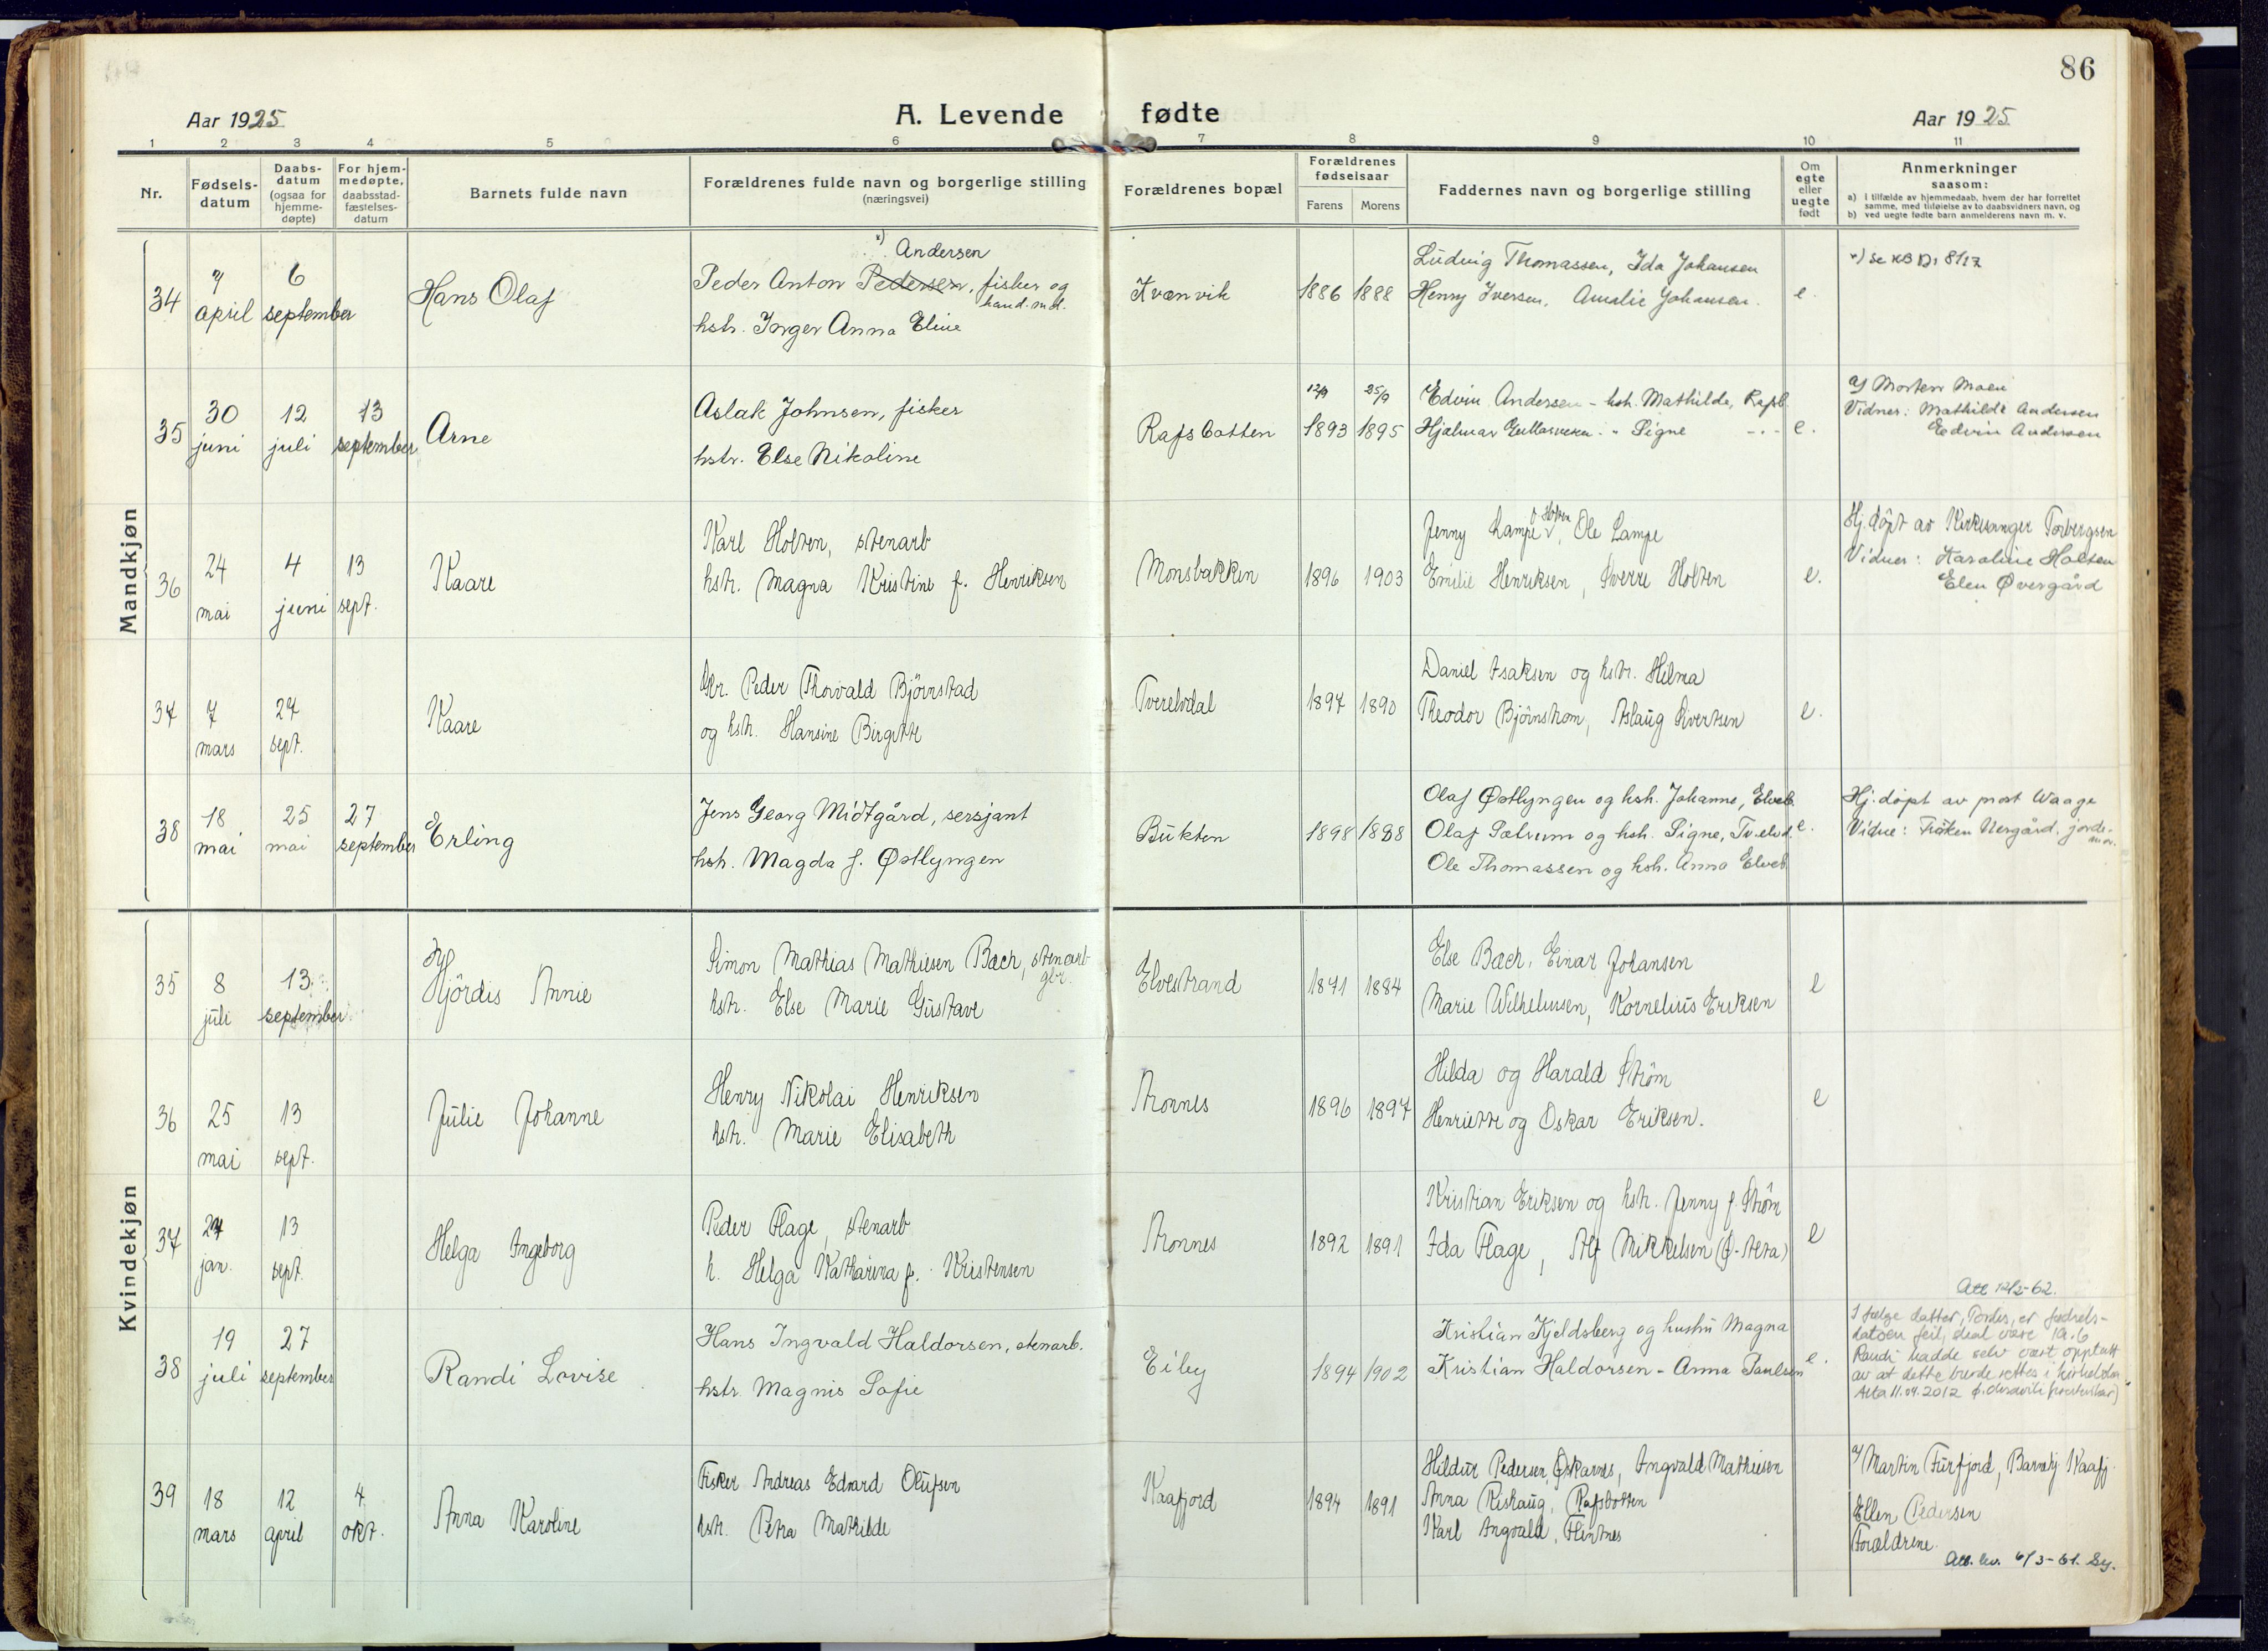 86
Aar 1925
A. Levende fødte
Aar 1925
1 2 3 4 5 6 7 8 9 10 11
Nr.
Fødsels-
datum
Daabs-
datum
(ogsaa for
hjemme-
døpte)
For hjem-
medøpte,
daabsstad-
fæstelses-
datum
Barnets fulde navn
Forældrenes fulde navn og borgerlige stilling
(næringsvei)
Forældrenes bopæl
Forældrenes
fødselsaar
Farens Morens
Faddernes navn og borgerlige stilling
Om
egte
eller
uegte
født
Anmerkninger
saasom:
a) i tilfælde av hjemmedaab, hvem der har forrettet
samme, med tilføielse av to daabsvidners navn, og
b) ved uegte fødte barn anmelderens navn m. v.
Mandkjøn
34
7 april
6 september
Hans Olaf
x) Andersen
Peder Anton Pedersen, fisker og
hstr. Inger Anna Eline
Kvænvik
1886 1888
Ludvig Thomassen, Ida Johansen
Henry Iversen, Amalie Johansen.
e.
x) Se KB D: 8/17
35
30 juni
12 juli
13 september
Arne
Aslak Johnsen, fisker
hstr. Else Nikoline
Rafsbotten
12/9 25/9
1893 1895
Edvin Andersen - hst. Mathilde, Rafsb.
Hjalmar - " Signe - " -
e.
a) Morten Moen
Vidner: Mathilde Andersen
Edvin Andersen
36
24 mai
4 juni
13 sept.
Kaare
Karl Holten, stenarb
hstr. Magna Kristine f. Henriksen
Monsbakken
1896 1903
Jenny Lampe, Ole Lampe
Emilie Henriksen, Sverre Holten
e.
Hj. døpt av Kirkesanger Torbergsen
Vidner: Karoline Holten
Elen Øvergård
37
7 mars
27 sept.
Kaare
Gbr. Peder Thorvald Bjørnstad
og hstr. Hansine Birgitte
Tverelvdal
1897 1890
Daniel Isaksen og hstr. Hilma
Theodor Bjørnstrom, Aslaug Sivertsen
e.
38
18 mai
25 mai
27 september
Erling
Jens Georg Midtgård, sersjant
hstr. Magda f. Østlyngen
Bukten
1898 1888
Olaf Østlyngen og hstr. Johanne, Elveb.
Olaf Sælrum og hstr. Signe, Tv.elvd.
Ole Thomassen og hstr. Anna Elveb.
e.
Hj. døpt av prost Waage
Vidne: Frøken Nergård, jordmor.
Kvindekjøn
35
8 juli
13 september
Hj
Hjördis Annie
Simon Mathias Mathisen Bæch, stenarb
gbr.
hstr. Else Marie Gustava
Elvestrand
1871 1884
Else Bæch, Einar Johansen
Marie Wilhelmsen, Kornelius Eriksen
e
36
25 mai
13 sept.
Julie Johanne
Henry Nikolai Henriksen
hstr. Marie Elisabeth
Kronnes
1896 1897
Hilda og Harald Strøm
Henriette og Oskar Eriksen.
e
37
24 jan.
13 sept.
Helga Ingeborg
Peder Flage, stenarb
h. Helga Katharina f. Kristensen
Kronnes
1892 1891
Kristian Eriksen og hstr. Jenny f. Strøm
Ida Flage, Alf Mikkelsen (Ø-Alta)
e
38
19 juli
27 september
Randi Lovise
Hans Ingvald Haldorsen, stenarb.
hstr. Magnis Sofie
Eiby
1894 1902
Kristian Kjeldsberg og hustru Magna
Kristian Haldorsen - Anna Paulsen
e.
Att 12/2-62.
I følge datter, Tordis, er fødsels-
datoen feil, skal være 19.6
Randi hadde selv vært opptatt
av at dette burde rettes i kirkeboka
Alta 11.09.2012
39
18 mars
12 april
4 okt.
Anna Karoline
Fisker Andreas Edvard Olufsen
hstr. Petra Mathilde
Kaafjord
1894 1891
Hildur Pedersen, Øskarnes, Ingvald Mathisen
Anna Rishaug, Rafsbotten
Karl Ingvald, Flintnes
a) Martin Furfjord, Barnebj. Kaafj.
Ellen Pedersen
Forældrene.
Att. lev. 6/3-61. Sy.